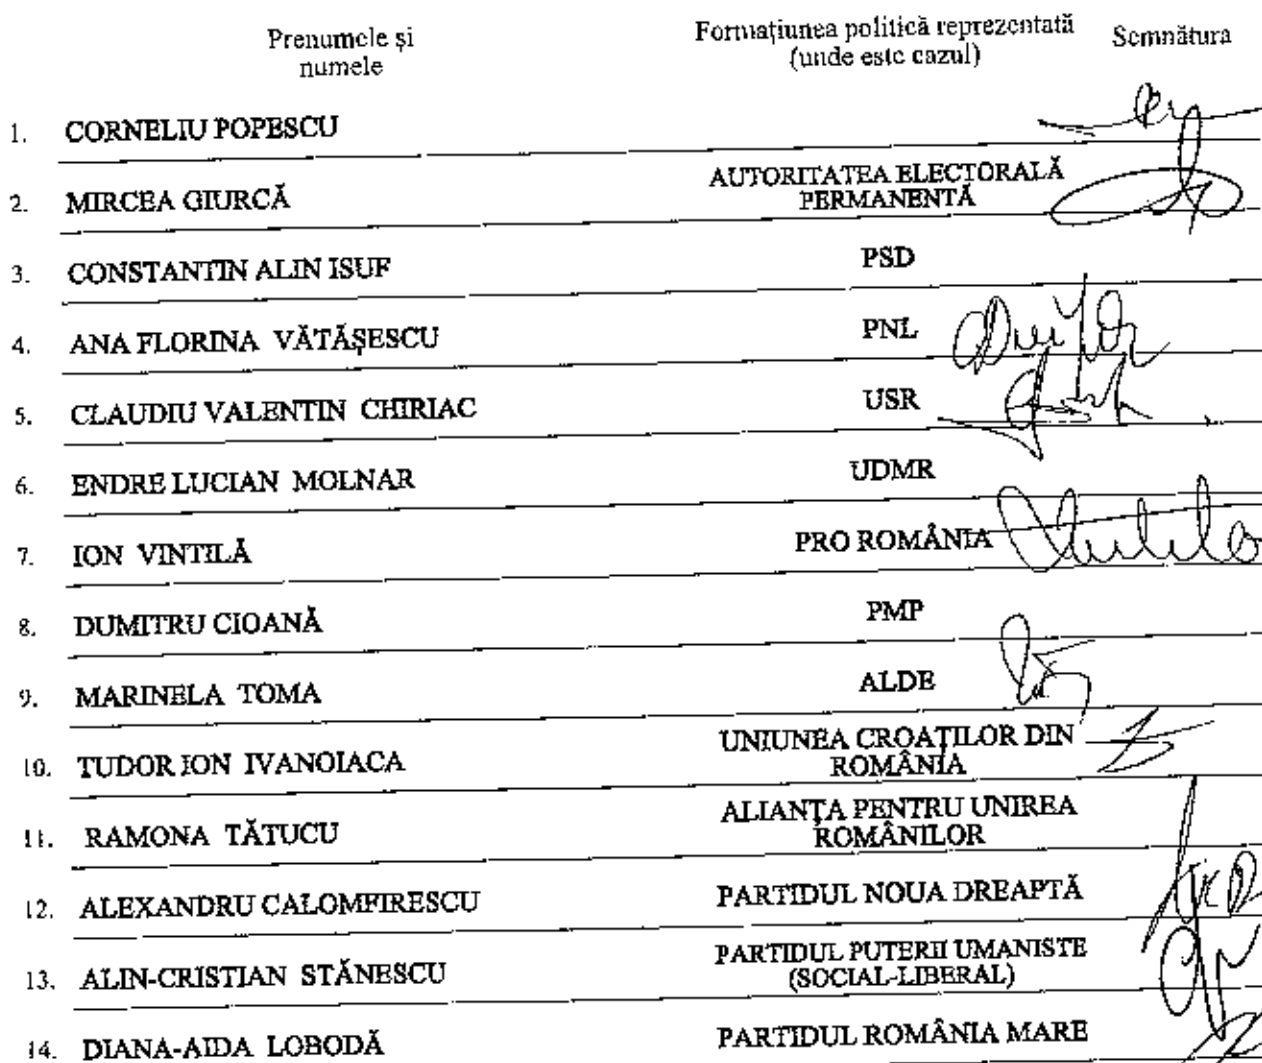 Prenumele și numele
Formațiunea politică reprezentată (unde este cazul)
Semnătura
1. CORNELIU POPESCU
2. MIRCEA GIURCĂ AUTORITATEA ELECTORALĂ PERMANENTĂ
3. CONSTANTIN ALIN ISUF PSD
4. ANA FLORINA VĂTĂȘESCU PNL
5. CLAUDIU VALENTIN CHIRIAC USR
6. ENDRE LUCIAN MOLNAR UDMR
7. ION VINTILĂ PRO ROMÂNIA
8. DUMITRU CIOANĂ PMP
9. MARINELA TOMA ALDE
10. TUDOR ION IVANOIACA UNIUNEA CROAȚILOR DIN ROMÂNIA
11. RAMONA TĂTUCU ALIANȚA PENTRU UNIREA ROMÂNILOR
12. ALEXANDRU CALOMFIRESCU PARTIDUL NOUA DREAPTĂ
13. ALIN-CRISTIAN STĂNESCU PARTIDUL PUTERII UMANISTE (SOCIAL-LIBERAL)
14. DIANA-AIDA LOBODĂ PARTIDUL ROMÂNIA MARE